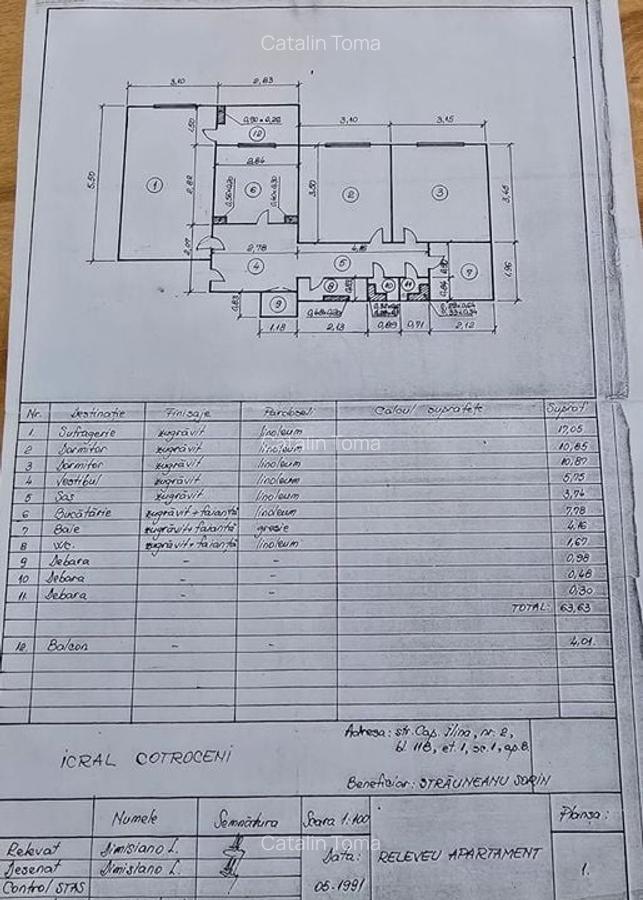 Catalin Toma
3,10 2,83
1,50 0,90 × 0,22
12
3,10 3,15
2,84
5,50 2,82
1 6 2 3
3,50 3,45
2,07
2,78
4 5
8 10 11 7
1,96
0,83
9
1,18 2,13 0,89 0,71 2,12
Nr. Destinație Finisaje Pardoseli Calcul suprafețe Supraf.
1. Sufragerie zugrăvit linoleum 17,05
2 Dormitor zugrăvit linoleum 10,85
Catalin Toma
3 Dormitor zugrăvit linoleum 10,87
4 Vestibul zugrăvit linoleum 5,75
5 Sas zugrăvit linoleum 3,74
6 Bucătărie zugrăvit+faianță linoleum 7,78
7 Baie zugrăvit+faianță gresie 4,16
8 W.c. zugrăvit+faianță linoleum 1,67
9 Debara - - 0,98
10 Debara - - 0,48
11 Debara - - 0,30
TOTAL: 63,63
12. Balcon - - 4,01.
Adresa: str. Cap. Ilina, nr. 2,
bl. 11B, et. 1, sc. 1, ap. 8.
ICRAL COTROCENI
Beneficiar: STRĂUNEANU SORIN
Numele Semnătura Scara 1:100 Planșa:
Relevat Dimisiano L. Catalin Toma
Desenat Dimisiano L. Data: RELEVEU APARTAMENT 1.
Control STAS 05.1991